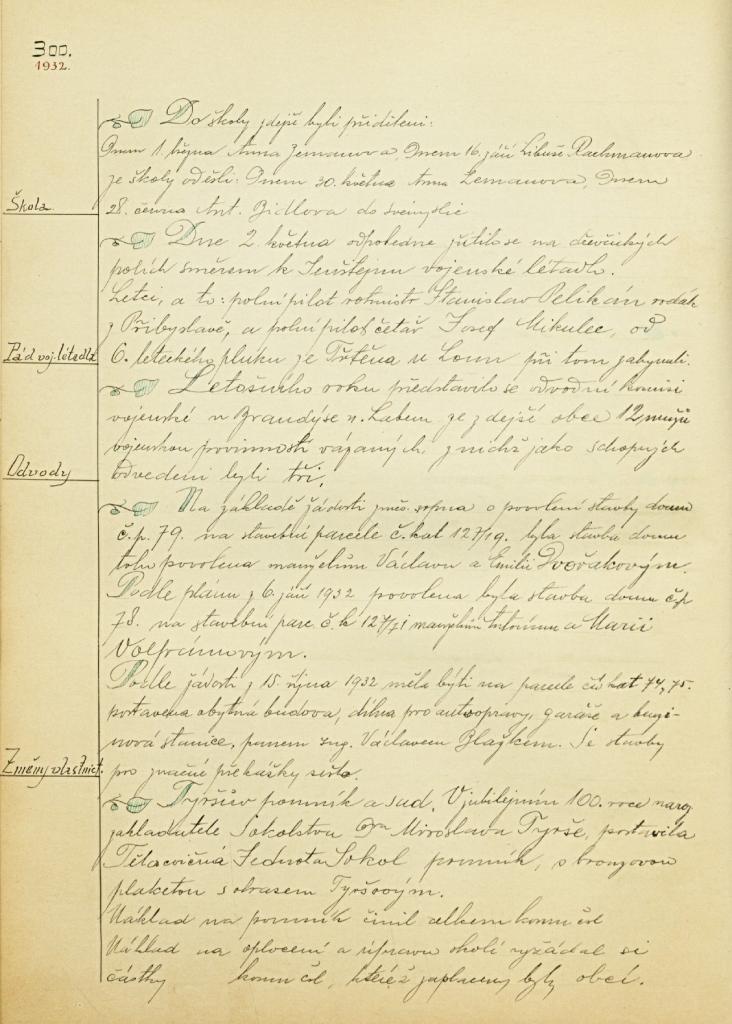 300.
1932.
Do školy zdejší byli přiděleni:
Dnem 1. března Anna Zemanova, Dnem 16. září Libuše Rachmanova
ze školy odešli: Dnem 30. května Anna Zemanova, Dnem
Škola.
28. června Ant. Bidlova do Svémyslic
Dne 2. května odpoledne zřítilo se na dřevčických
polích směrem k Jenštejnu vojenské létadlo.
Letci, a to: polní pilot rotmistr Stanislav Pelikán rodák
z Přibyslavě, a polní pilot četař Josef Mikulec, od
Pád voj. létadla
6. leteckého pluku ze Trtěna u Loun při tom zahynuli.
Letošního roku představilo se odvodní komisi
vojenské v Brandýse n. Labem ze zdejší obce 12 mužů
vojenskou povinností vázaných, z nichž jako schopných
Odvody
odvedeni byli tři.
Na základě žádosti srpna o povolení stavby domu
č.p. 79. na stavební parcele č. kat 127/19. byla stavba domu
toho povolena manželům Václavu a Emilii Dvořakovým.
Podle plánu z 6. září 1932 povolena byla stavba domu čp
78. na stavební parc. č. k 127/21 manželům Antonínu a Marii
Volfrámovým.
Podle žádosti z 15. října 1932 měla býti na parcele čís kat 74, 75.
postavena obytná budova, dílna pro autoopravy, garáže a benzi-
nová stanice, panem Ing. Václavem Blažkem. Se stavby
Změny vlastnict.
pro značné překážky sešlo.
Tyršův pomník a sad. V jubilejním 100. roce naroz
zakladatele Sokolstva Dra Miroslava Tyrše, postavila
Tělocvičná Jednota Sokol pomník, s bronzovou
plaketou s obrazem Tyršovým.
Náklad na pomník činil celkem korun čsl
Náklad na oplocení a úpravu okolí vyžádal si
částky korun čsl, kteréž zaplaceny byly obcí.